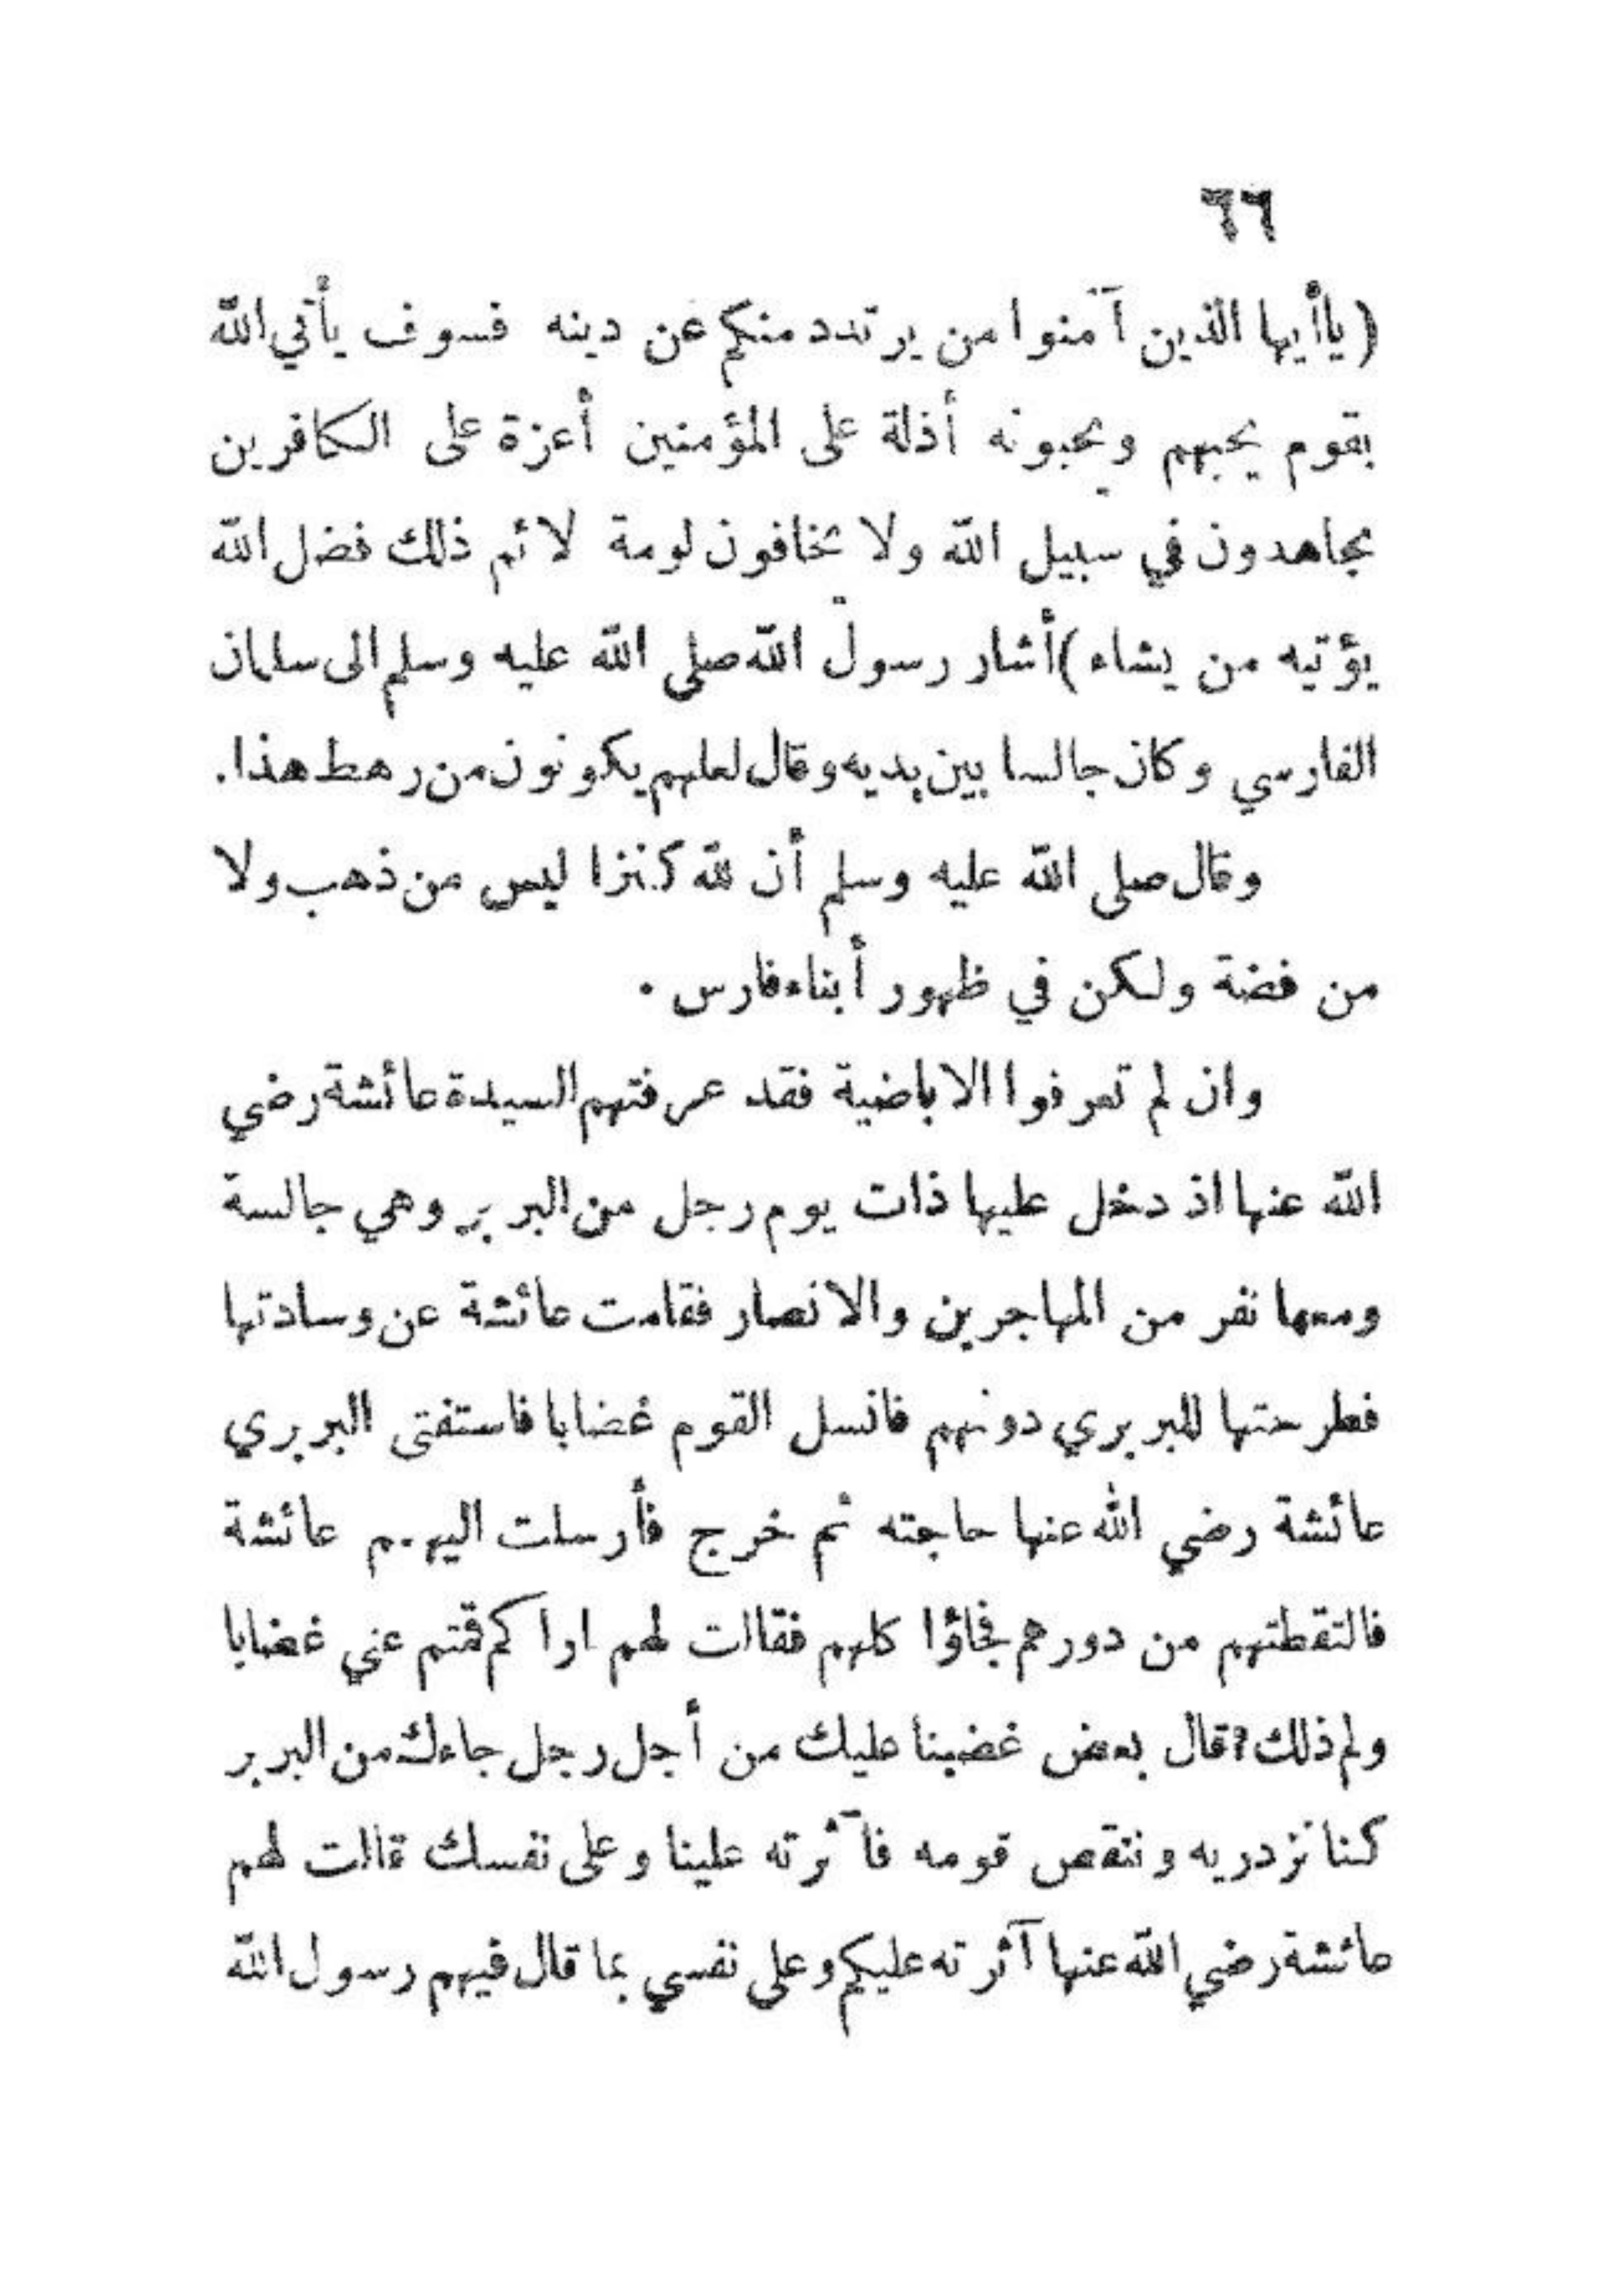 ٦٦
( ياأيها الذين آمنوا من يرتدد منكم عن دينه فسوف يأتي الله
بقوم يحبهم ويحبونه أذلة على المؤمنين أعزة على الكافرين
يجاهدون في سبيل الله ولا يخافون لومة لائم ذلك فضل الله
يؤتيه من يشاء )أشار رسول الله صلى الله عليه وسلم الى سلمان
الفارسي وكان جالسا بين يديه وقال لعلهم يكونون من رهط هذا.
وقال صلى الله عليه وسلم أن لله كنزا ليس من ذهب ولا
من فضة ولكن في ظهور أبناء فارس .
وان لم تعرفوا الاباضية فقد عرفتهم السيدة عائشة رضي
الله عنها اذ دخل عليها ذات يوم رجل من البربر وهي جالسة
ومعها نفر من المهاجرين والانصار فقامت عائشة عن وسادتها
فطرحتها للبربري دونهم فانسل القوم غضابا فاستفتى البربري
عائشة رضي الله عنها حاجته ثم خرج فأرسلت اليهم عائشة
فالتقطتهم من دورهم فجاؤا كلهم فقالت لهم اراكم قمتم عني غضابا
ولم ذلك؟ قال بعض غضبنا عليك من أجل رجل جاءك من البربر
كنا نزدريه وننقص قومه فآثرته علينا وعلى نفسك قالت لهم
عائشة رضي الله عنها آثرته عليكم وعلى نفسي بما قال فيهم رسول الله